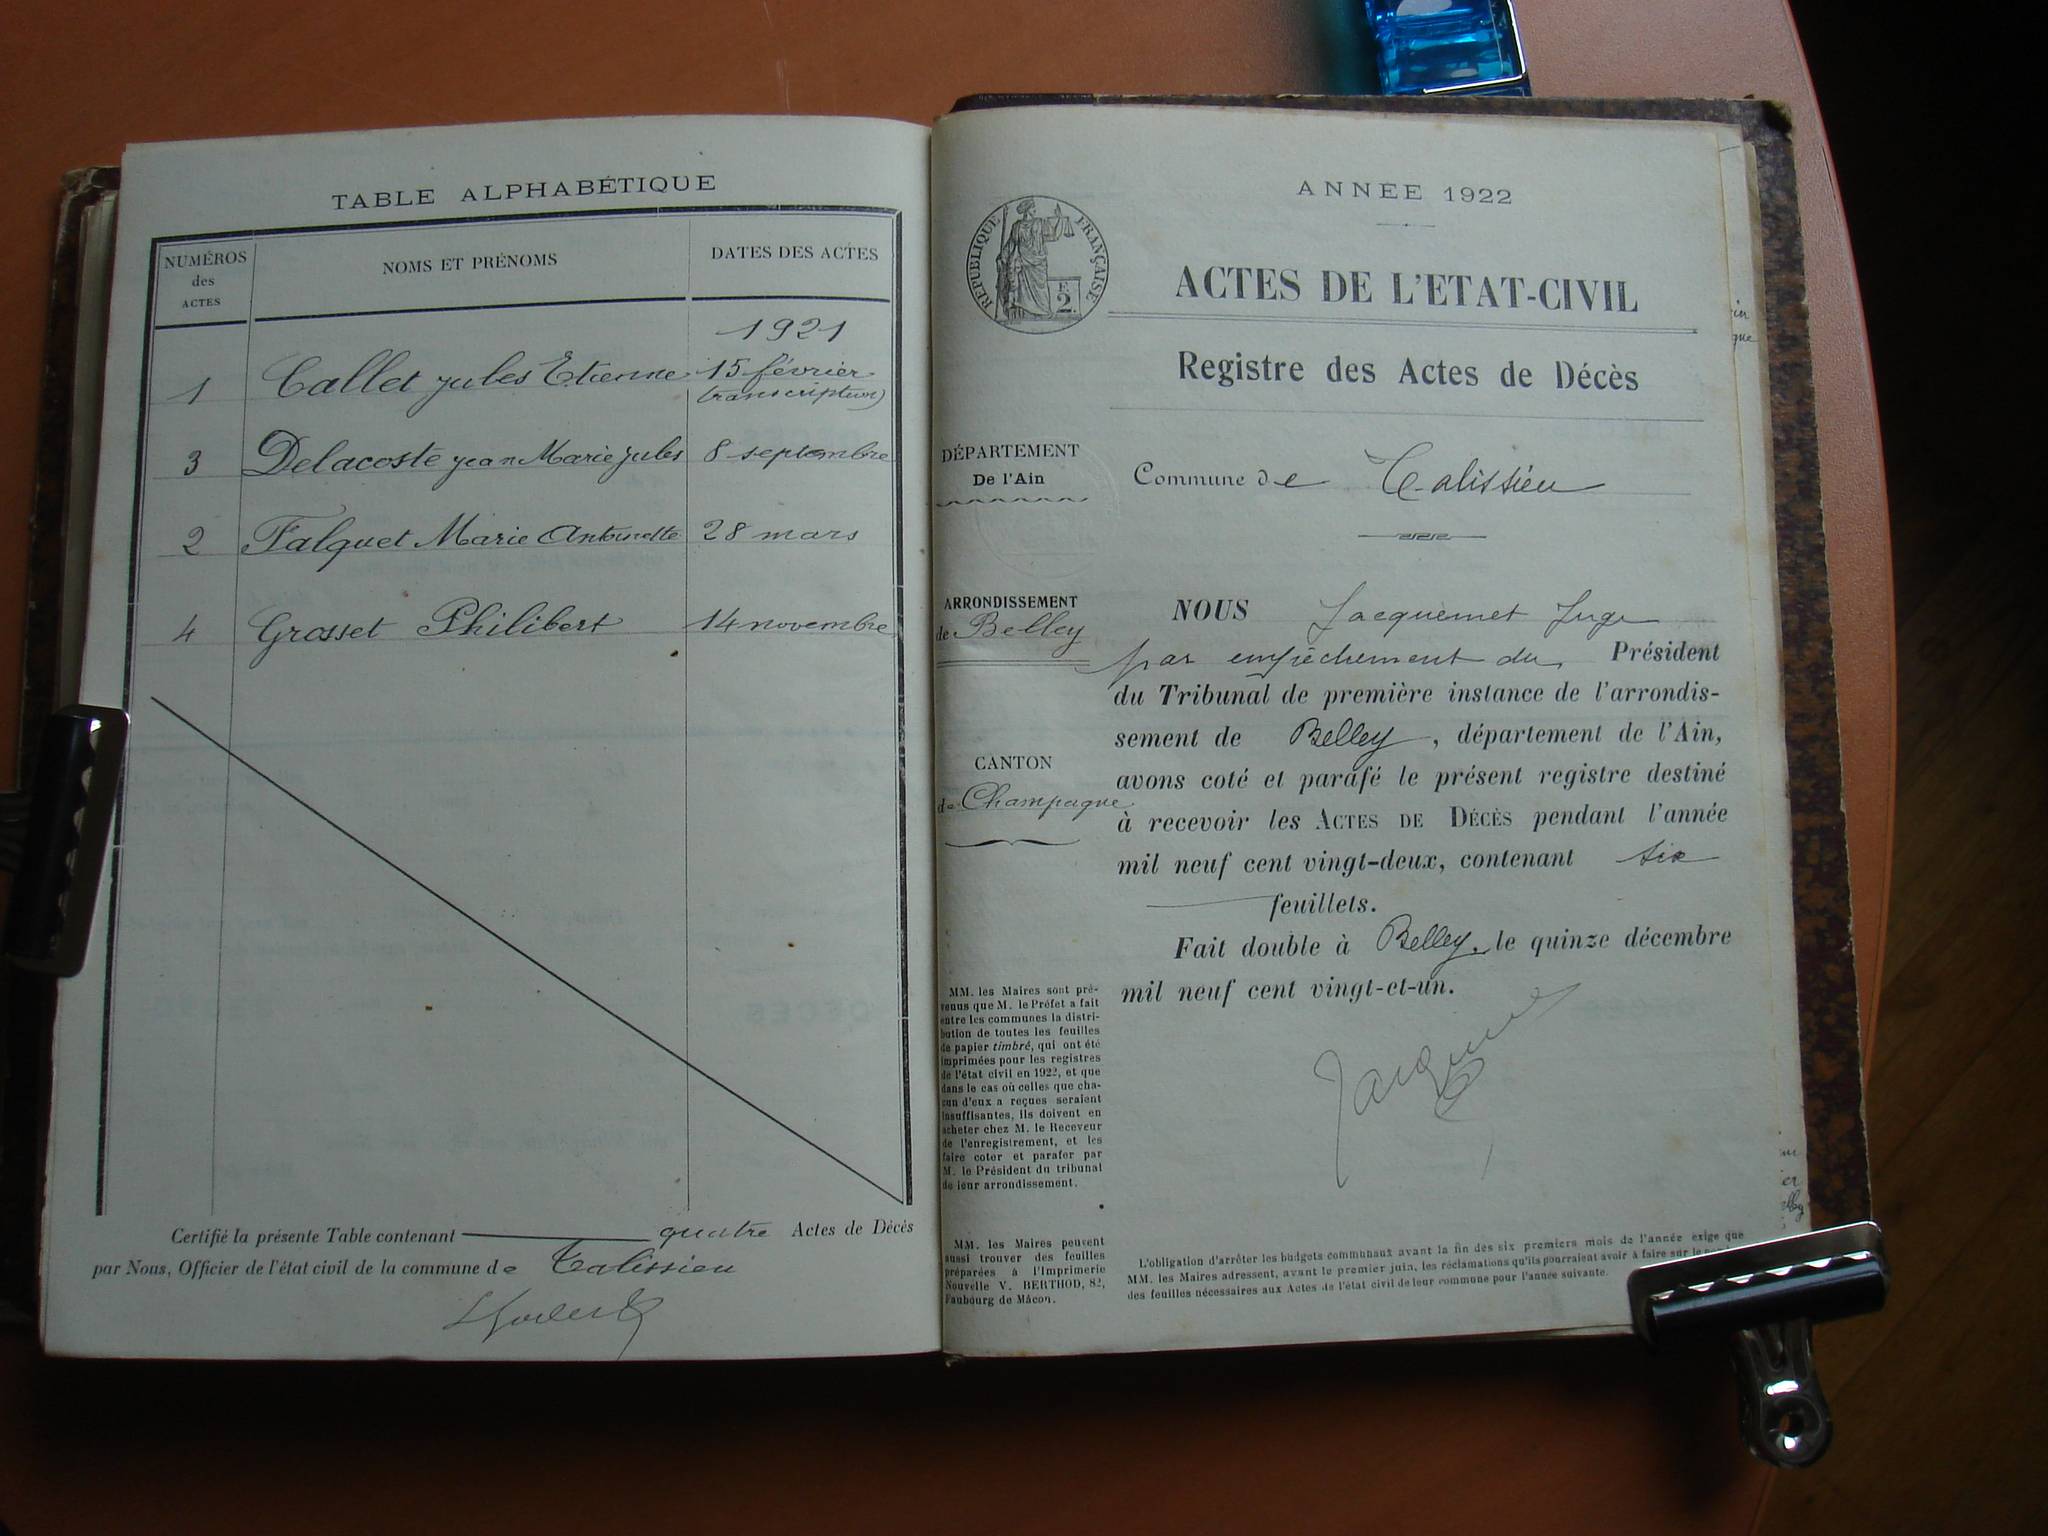 TABLE ALPHABÉTIQUE
NUMÉROS
des
ACTES
NOMS ET PRÉNOMS
DATES DES ACTES
1921
1 Callet Jules Etienne 15 février
(transcription)
3 Delacoste Jean Marie Jules 8 septembre
2 Falquet Marie Antoinette 28 mars
4 Grosset Philibert 14 novembre
Certifié la présente Table contenant quatre Actes de Décès
par Nous, Officier de l'état civil de la commune de Talissieu
ANNÉE 1922
RÉPUBLIQUE FRANÇAISE
F.
2.
ACTES DE L'ETAT-CIVIL
Registre des Actes de Décès
DÉPARTEMENT
De l'Ain
Commune de Talissieu
ARRONDISSEMENT
de Belley
CANTON
de Champagne
NOUS Jacquemet Juge
par empêchement du Président
du Tribunal de première instance de l'arrondis-
sement de Belley, département de l'Ain,
avons coté et parafé le présent registre destiné
à recevoir les ACTES DE DÉCÈS pendant l'année
mil neuf cent vingt-deux, contenant six
feuillets.
Fait double à Belley, le quinze décembre
mil neuf cent vingt-et-un.
MM. les Maires sont pré-
venus que M. le Préfet a fait
entre les communes la distri-
bution de toutes les feuilles
de papier timbré, qui ont été
imprimées pour les registres
de l'état civil en 1922, et que
dans le cas où celles que cha-
cun d'eux a reçues seraient
insuffisantes, ils doivent en
acheter chez M. le Receveur
de l'enregistrement, et les
faire coter et parafer par
M. le Président du tribunal
de leur arrondissement.
MM. les Maires peuvent
aussi trouver des feuilles
préparées à l'Imprimerie
Nouvelle V. BERTHOD, 82,
Faubourg de Mâcon.
L'obligation d'arrêter les budgets communaux avant la fin des six premiers mois de l'année exige que
MM. les Maires adressent, avant le premier juin, les réclamations qu'ils pourraient avoir à faire sur le
des feuilles nécessaires aux Actes de l'état civil de leur commune pour l'année suivante.